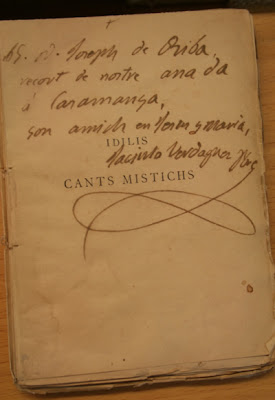 Joseph de Oriba,
recort de nostre anada
á Caramança,
son amich en Jesus y Maria,
Jacinto Verdaguer
IDILIS
CANTS MISTICHS